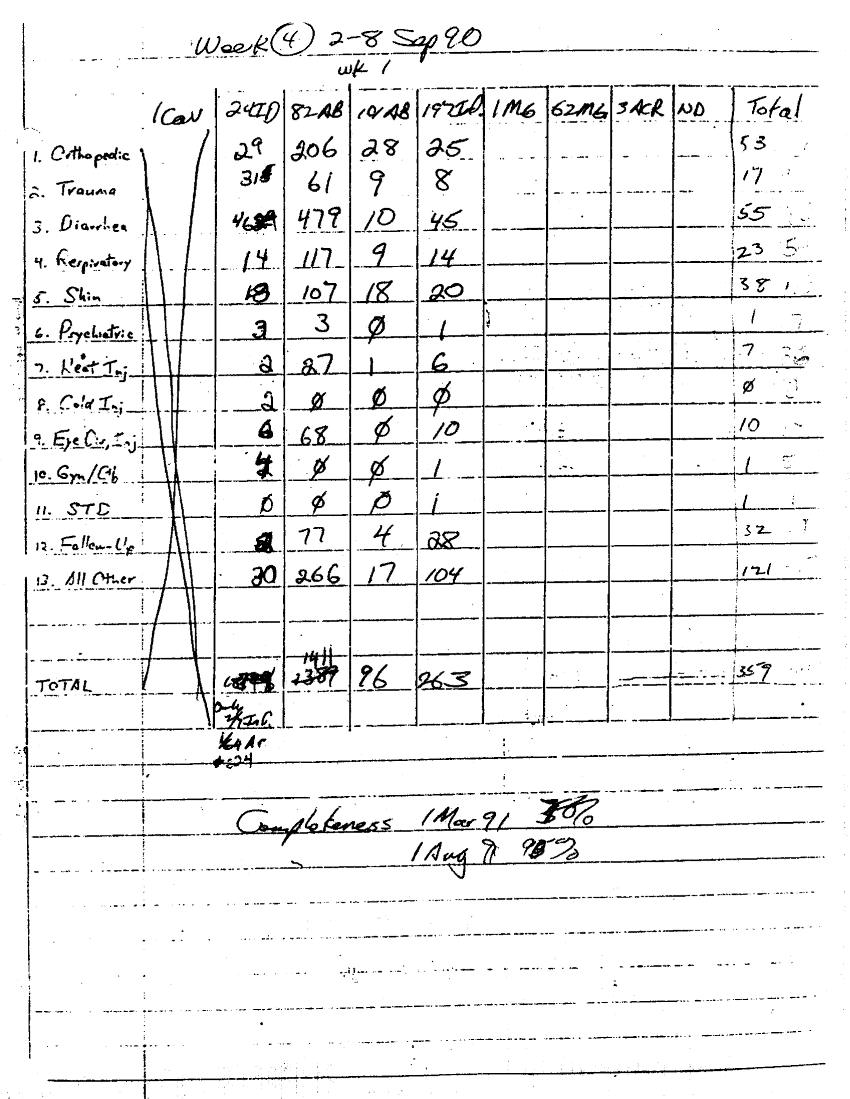 Week 4 2-8 Sep 90
wk 1
1 Cav 24ID 82AB 101AB 197Inf. 1MG 62MG 3ACR ND Total
1. Orthopedic 29 206 28 25 53
2. Trauma 61 9 8 17
3. Diarrhea 479 10 45 55
4. Respiratory 14 117 9 14 23
5. Skin 107 18 20 38
6. Psychiatric 3 3 Ø 1 1
7. Heat Inj 2 27 1 6 7
8. Cold Inj 2 Ø Ø Ø Ø
9. Eye Dis, Inj 6 68 Ø 10 10
10. Gyn/OB Ø Ø 1 1
11. STD Ø Ø Ø 1 1
12. Follow-Up 77 4 28 32
13. All Other 266 17 104 121
1411
TOTAL 96 263 359
Only
Completeness 1 Mar 91
1 Aug 91